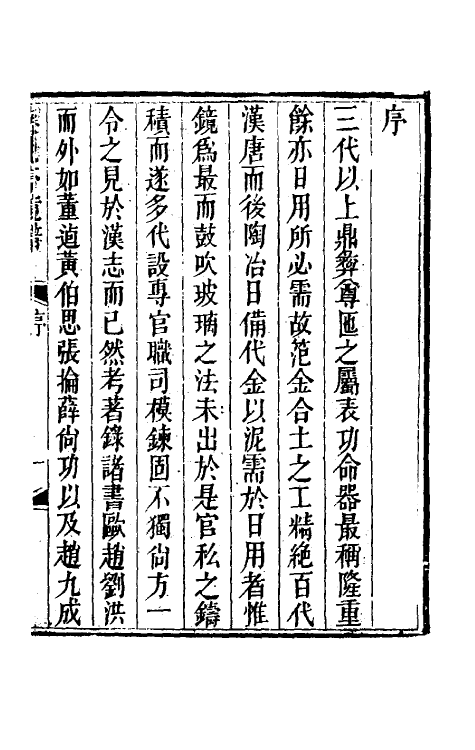 序
三代以上鼎彝尊匜之屬表功命器最稱隆重
餘亦日用所必需故笵金合土之工精絕百代
漢唐而後陶冶日備代金以泥需於日用者惟
鏡爲最而鼓吹玻瓈之法未出於是官私之鑄
積而遂多代設專官職司模鍊固不獨尙方一
令之見於漢志而已然考著錄諸書歐趙劉洪
而外如董逌黃伯思張掄薛尙功以及趙九成
序